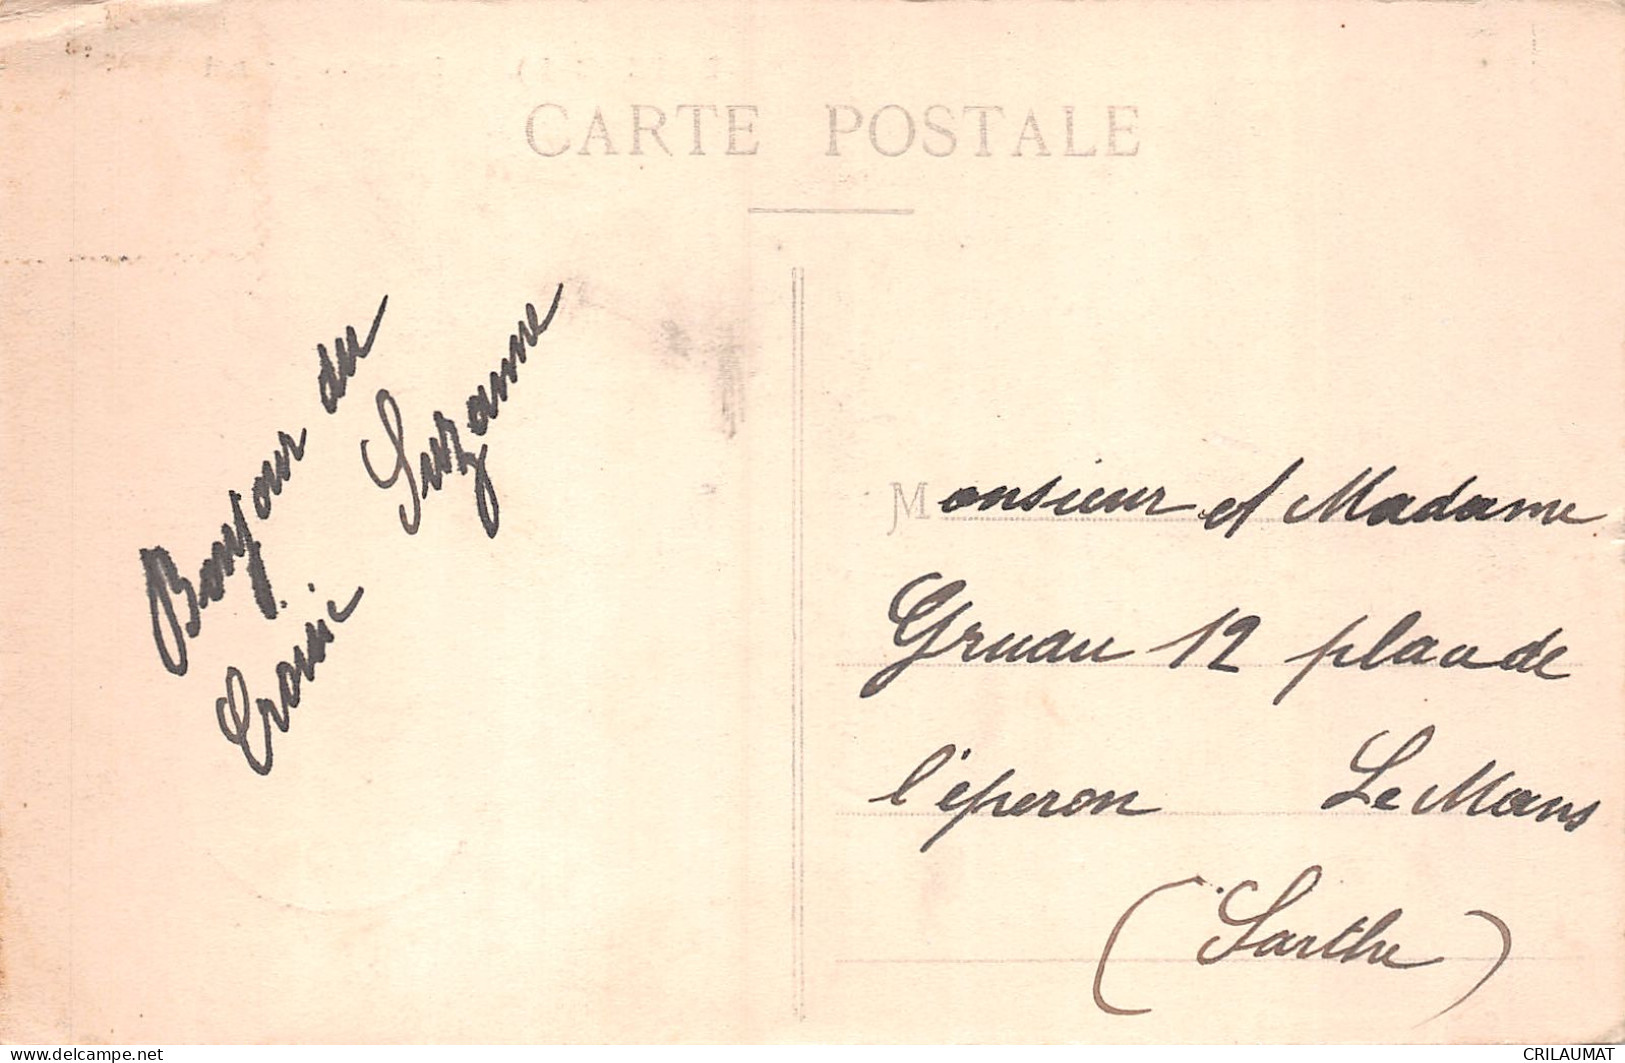 CARTE POSTALE
Bonjour du
Croisic
Suzanne
Monsieur et Madame
Gruau 12 place de
l'éperon Le Mans
(Sarthe)
delcampe.net
CRILAUMAT